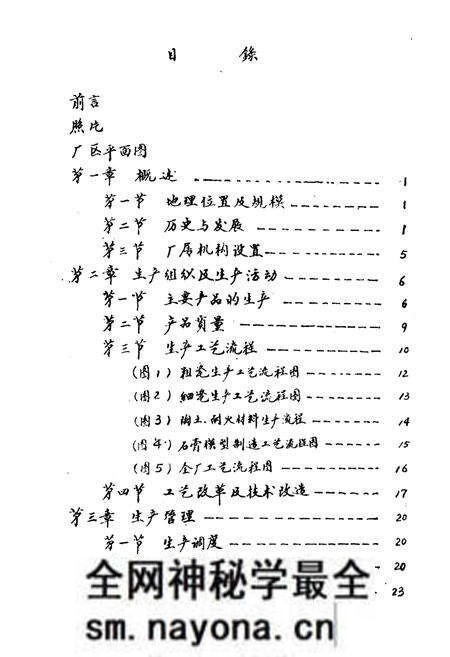 目 录
前言
照片
厂区平面图
第一章 概述 ---------------- 1
第一节 地理位置及规模 ---------- 1
第二节 历史与发展 ------------ 1
第三节 厂属机构设置 ----------- 5
第二章 生产组织及生产活动 --------- 6
第一节 主要产品的生产 --------- 6
第二节 产品质量 ------------- 9
第三节 生产工艺流程 ---------- 10
(图1)粗瓷生产工艺流程图 ------- 12
(图2)细瓷生产工艺流程图 ------- 13
(图3)陶土、耐火材料生产流程 ------ 14
(图4)石膏模型制造工艺流程图 ----- 15
(图5)全厂工艺流程图 --------- 16
第四节 工艺改革及技术改造 ------- 17
第三章 生产管理 ------------- 20
第一节 生产调度 ------------ 20
20
23
全网神秘学最全
sm.nayona.cn